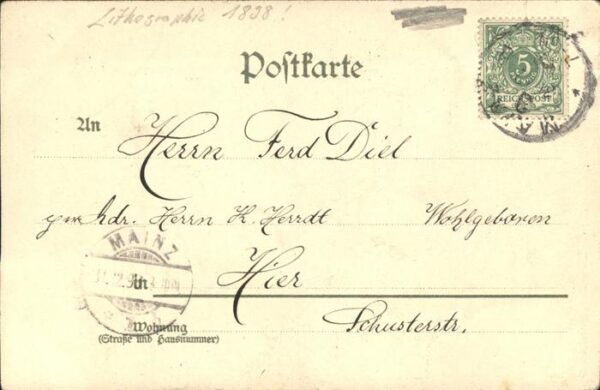 Lithographie 1898!
Postkarte
5
REICHSPOST
An
Herrn Ferd Diel
per Adr. Herrn K. Herrdt Wohlgeboren
MAINZ
in Hier
Schusterstr.
Wohnung
(Straße und Hausnummer)